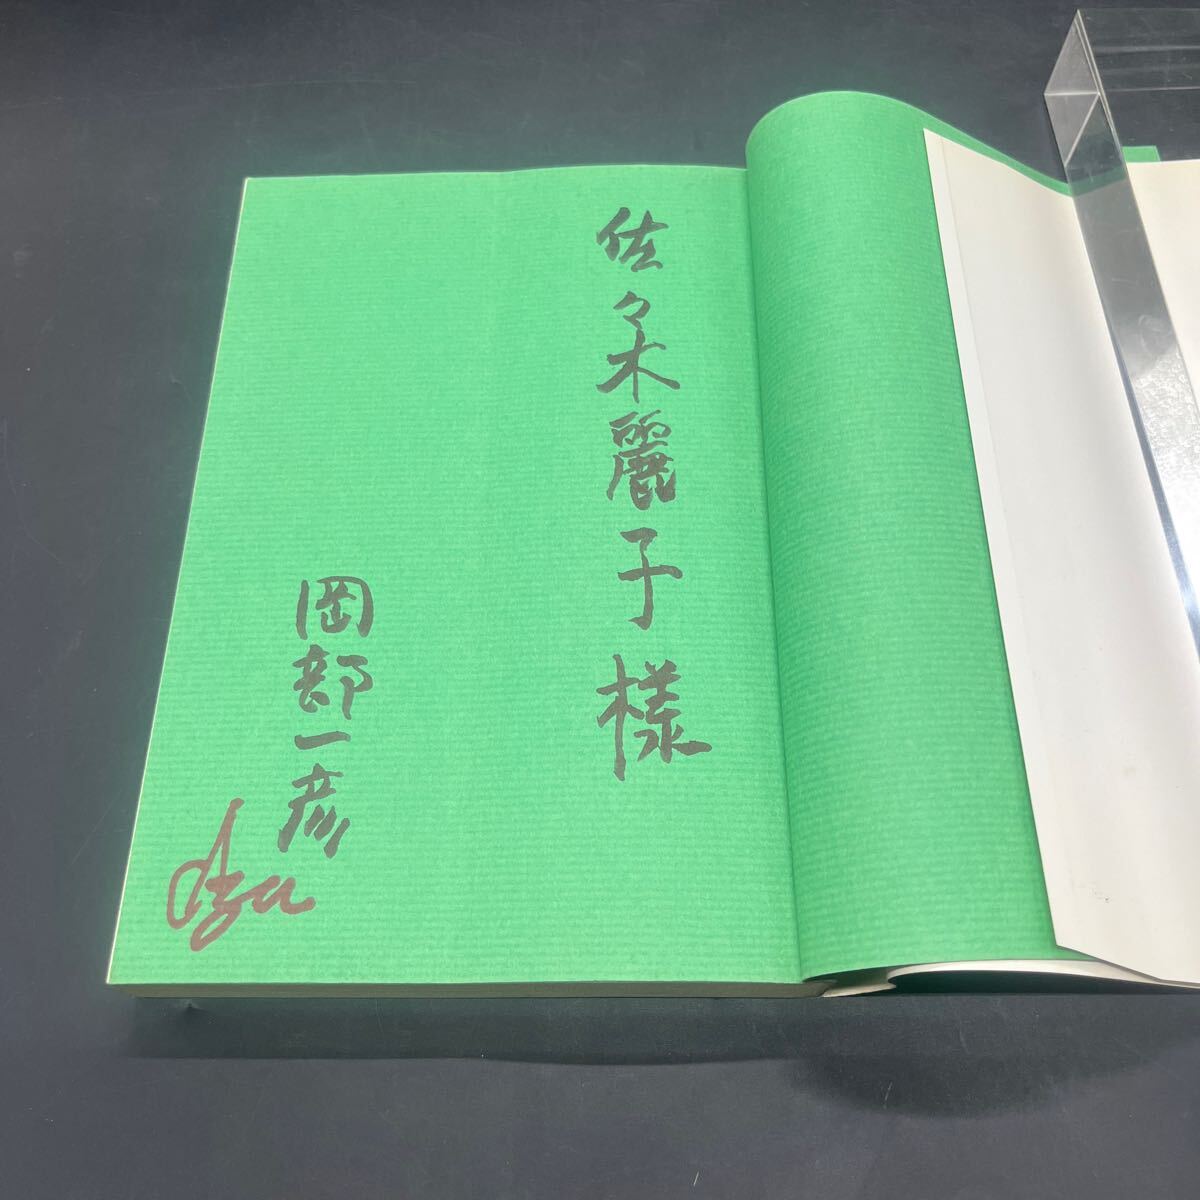 佐々木麗子様
岡部一彦